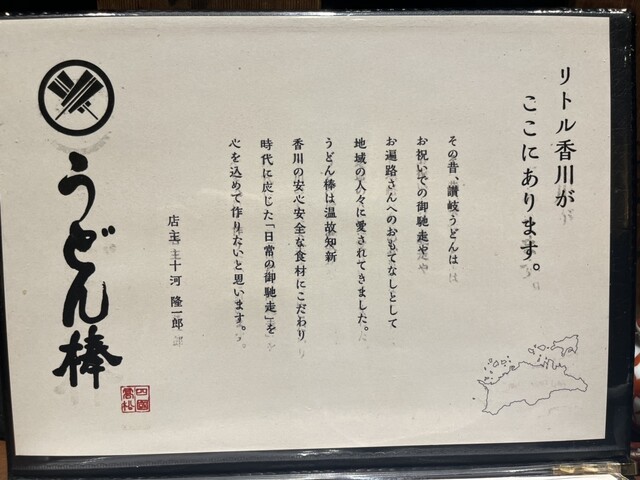 リトル香川が
ここにあります。
その昔、讃岐うどんは
お祝いでの御馳走や
お遍路さんへのおもてなしとして
地域の人々に愛されてきました。
うどん棒は温故知新
香川の安心安全な食材にこだわり
時代に応じた「日常の御馳走」を
心を込めて作りたいと思います。
店主 十河 隆一郎
うどん棒
四國
高松